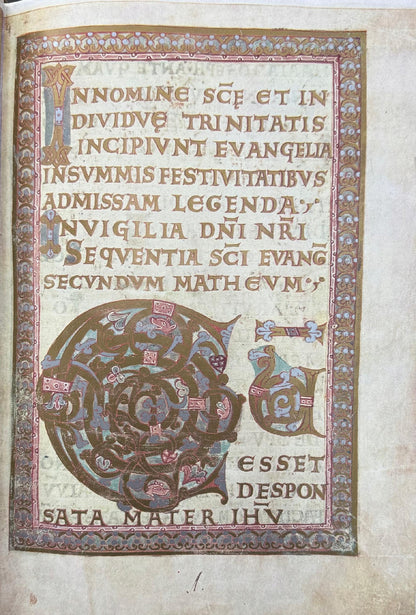 IN NOMINE SCĘ ET IN
DIVIDVĘ TRINITATIS
INCIPIVNT EVANGELIA
IN SVMMIS FESTIVITATIBVS
AD MISSAM LEGENDA
IN VIGILIA DN̄I NR̄I
SEQVENTIA SC̄I EVANḠ
SECVNDVM MATHEVM
CV̄
ESSET
DESPON
SATA MATER IHV̄
1.